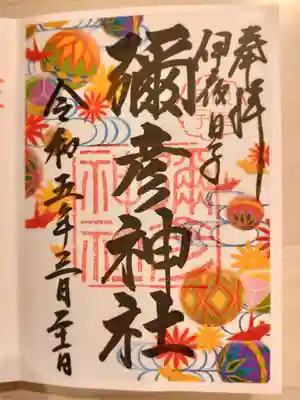 奉拝
伊夜日子
彌彦神社
令和五年三月二十一日